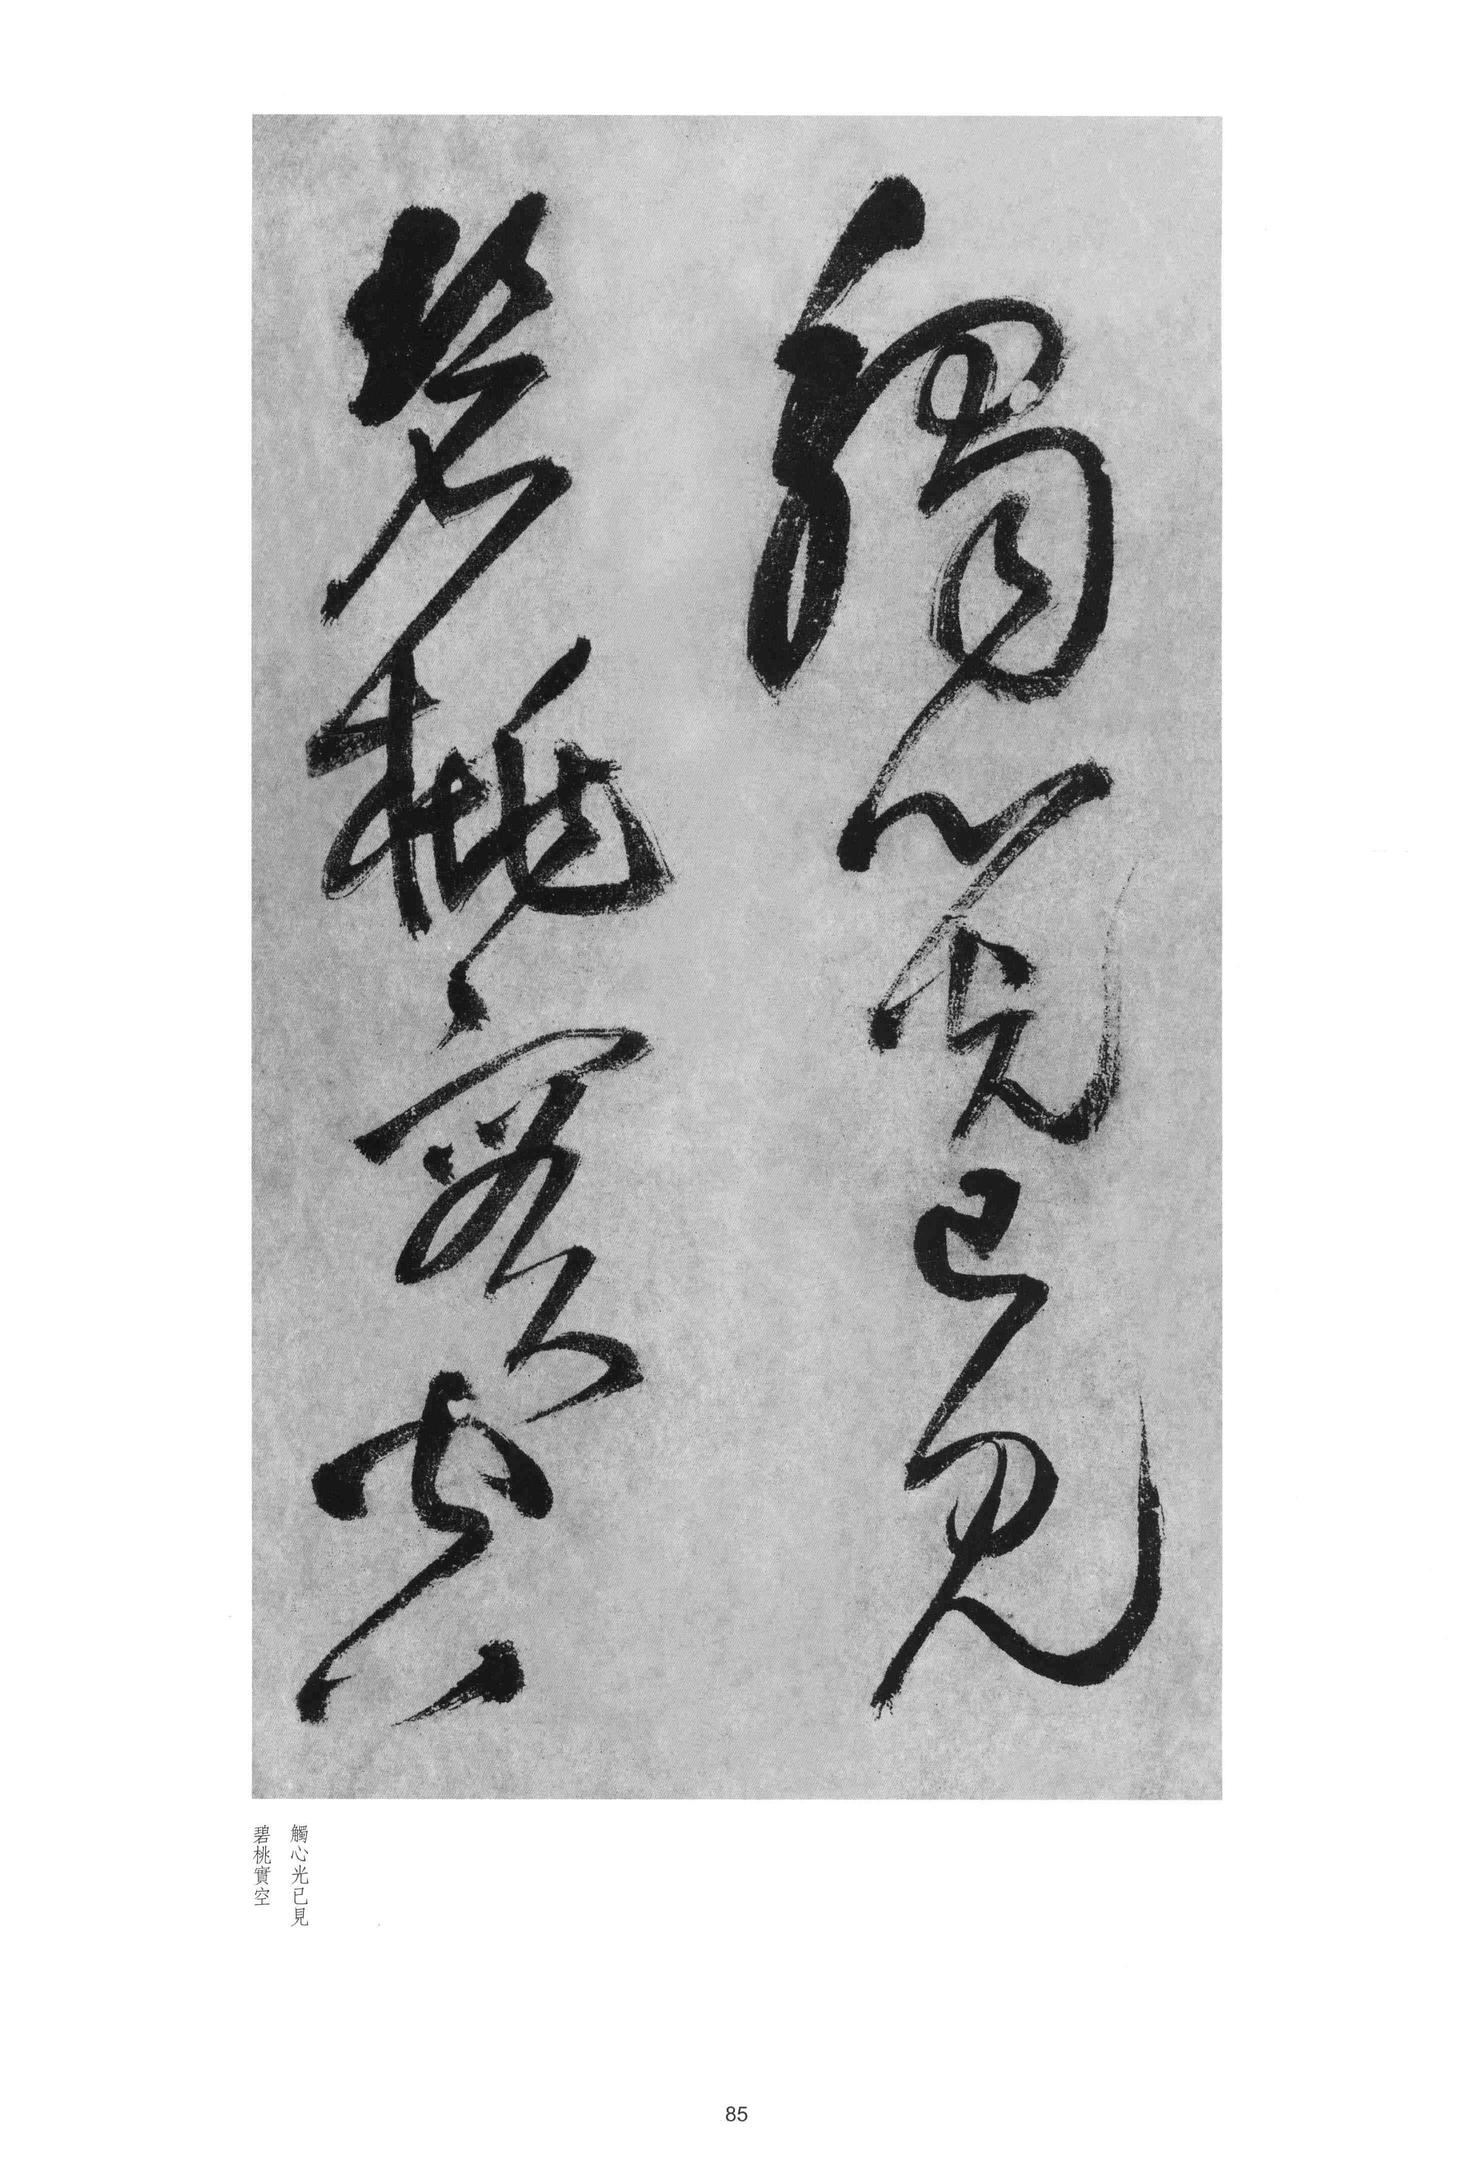 觸心光已見
碧桃實空
觸心光已見
碧桃實空
85